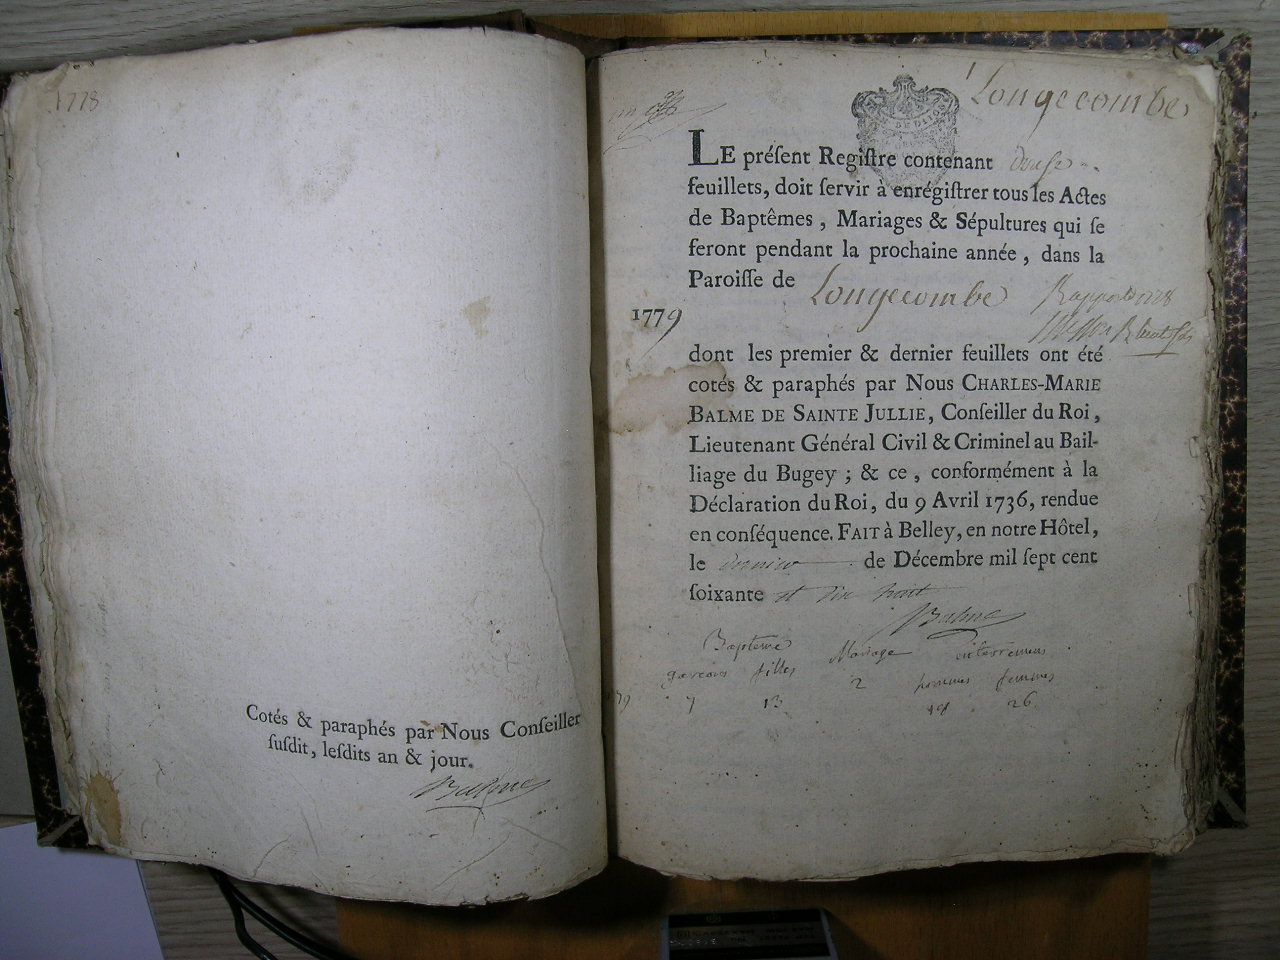 1778
Cotés & paraphés par Nous Conſeiller
ſuſdit, leſdits an & jour.
Balme
Longecombe
LE préſent Regiſtre contenant douſe
feuillets, doit ſervir à enrégiſtrer tous les Actes
de Baptêmes, Mariages & Sépultures qui ſe
feront pendant la prochaine année, dans la
Paroiſſe de Longecombe
1779
dont les premier & dernier feuillets ont été
cotés & paraphés par Nous CHARLES-MARIE
BALME DE SAINTE JULLIE, Conſeiller du Roi,
Lieutenant Général Civil & Criminel au Bail-
liage du Bugey ; & ce, conformément à la
Déclaration du Roi, du 9 Avril 1736, rendue
en conſéquence. FAIT à Belley, en notre Hôtel,
le dernier de Décembre mil ſept cent
ſoixante et dix huit
Balme
Bapteme Mariage enterremens
garcons filles 2 hommes femmes
7 13 18 26